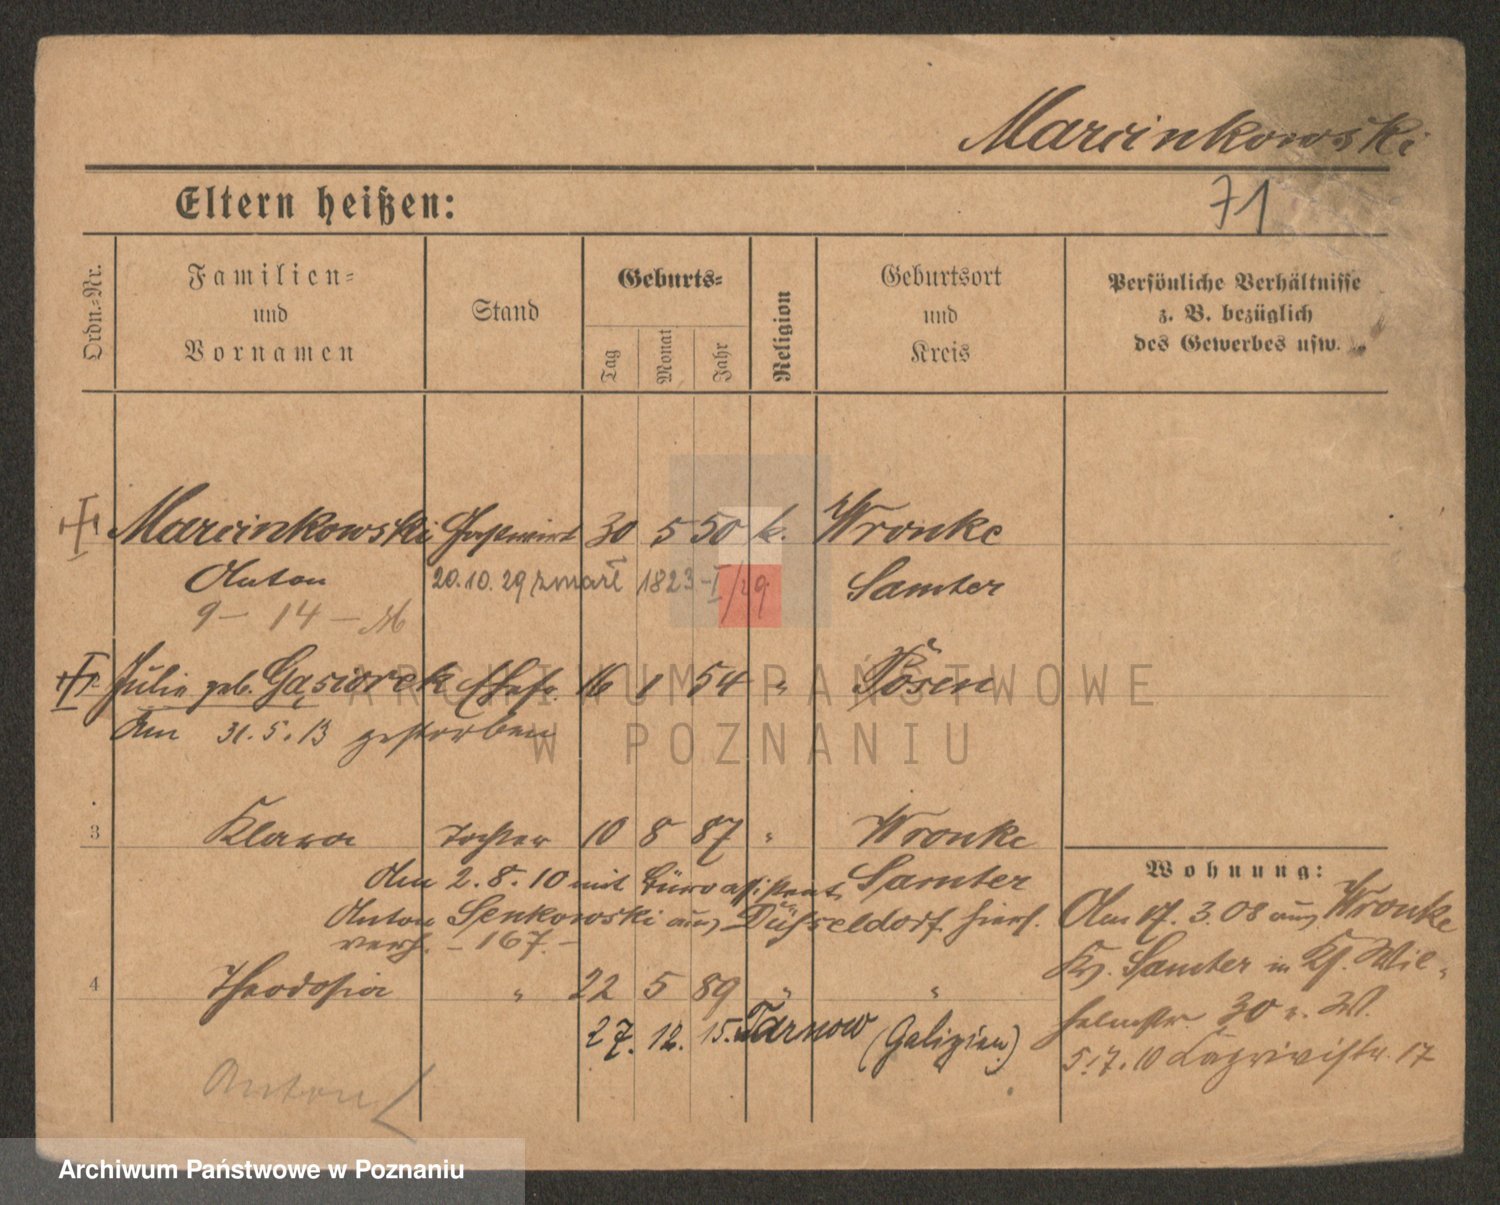 Marcinkowski
71
Eltern heißen:
Ordn.-Nr.
Familien-
und
Vornamen
Stand
Geburts-
Tag
Monat
Jahr
Religion
Geburtsort
und
Kreis
Persönliche Verhältnisse
z. B. bezüglich
des Gewerbes usw.
Marcinkowski Gastwirt 30 5 50 k. Wronke
Anton 20.10.29 zmarł 1823-I/29 Samter
9 - 14 -
Julie geb. Gąsiorek Ehefr. 16 1 54 " Posen
Am 31.5.13 gestorben
3 Klara Tochter 10 8 87 " Wronke
Am 2.8.10 mit Büroassistent Samter
Anton Senkowski aus Düsseldorf hiers.
verh. - 167 -
4 Theodosia " 22 5 89 " "
27. 12. 15. Tarnow (Galizien)
Anton
Wohnung:
Am 17. 3. 08 aus Wronke
Kr. Samter in Kf. Wil-
helmstr. 30 v. W.
5.7.10 17
ARCHIWUM PAŃSTWOWE
W POZNANIU
Archiwum Państwowe w Poznaniu